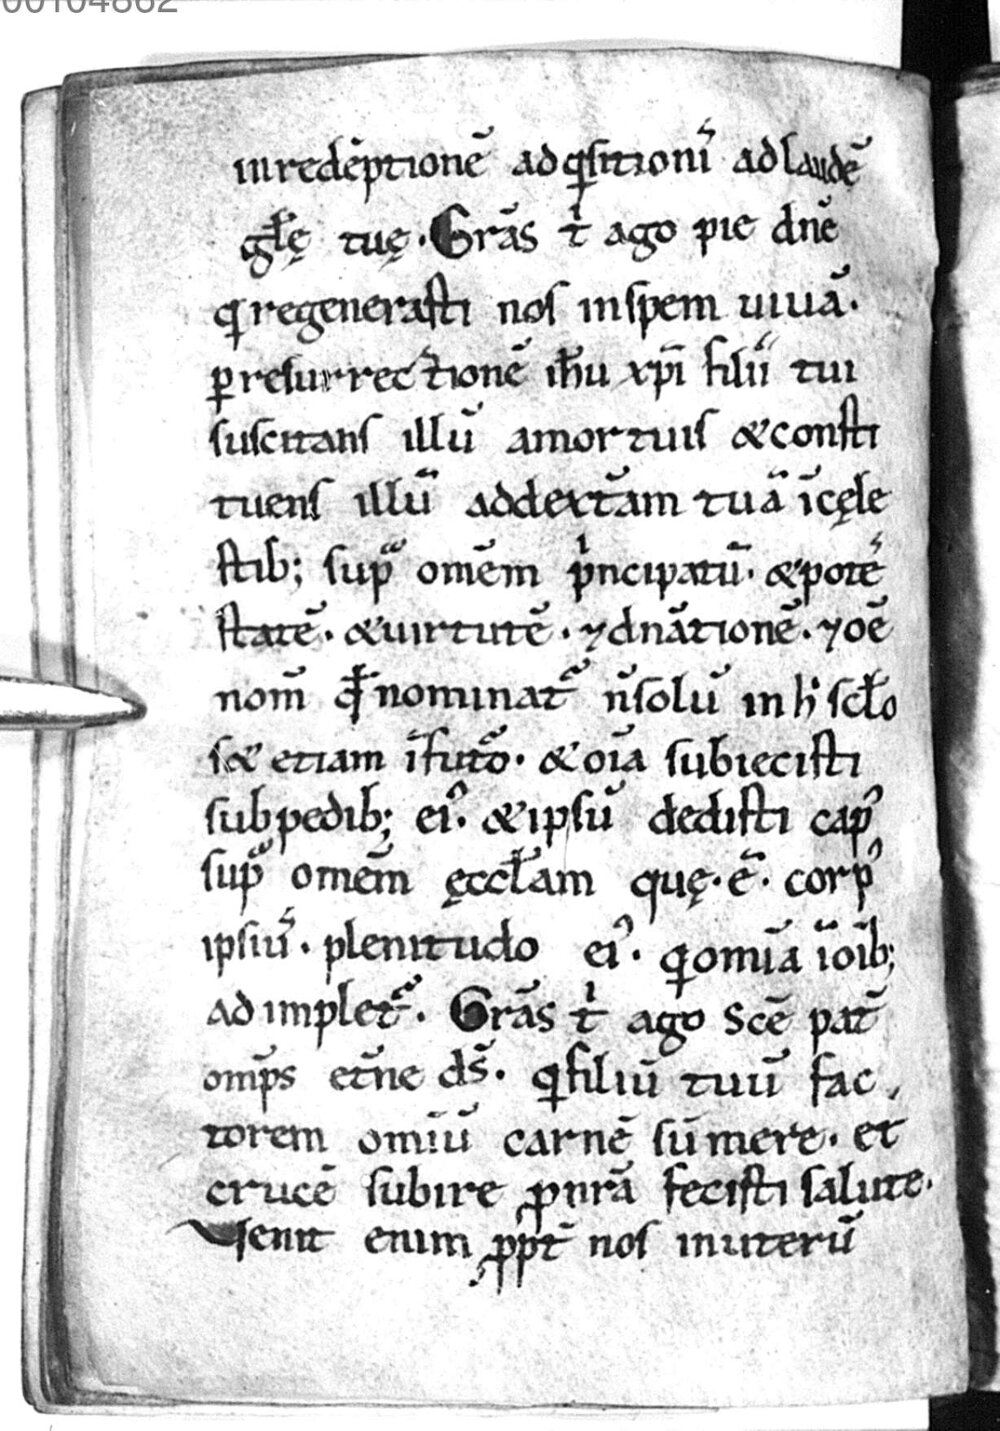 00104862
inredēptionē adqͥsitionı̄ˢ ad laudē
gl̄ę tuę. Grās tͥ ago pie dnē
qͥ regenerasti nos inspem uiuā.
ꝑ resurrectionē ih̄u xp̄i filii tui
suscitans illū amortuis &consti
tuens illū addextͣam tuā īcęle
stib; supͣ om̄em pͥncipatū. &potē
statē. &uirtutē. ⁊dnātionē. ⁊oē
nom̄ qď nominatͬ n̄solū in hͦ scl̄o
s& etiam īfutͦo. &oīa subiecisti
subpedib; eiꝰ. &ipsū dedisti capꝰ
supͣ om̄em ęccl̄am quę.ē. corpꝰ
ipsiꝰ. plenitudo eiꝰ. qͥ omīa īoīb;
adimpletͬ. Grās tͥ ago Scē pat̄
omp̄s et̄ne ds̄. qͥ filiū tuū fac,
torem omiū carnē sūmere. et
crucē subire ꝓ nrā fecisti salute.
Venit enim ꝓpt̄ nos inuterū